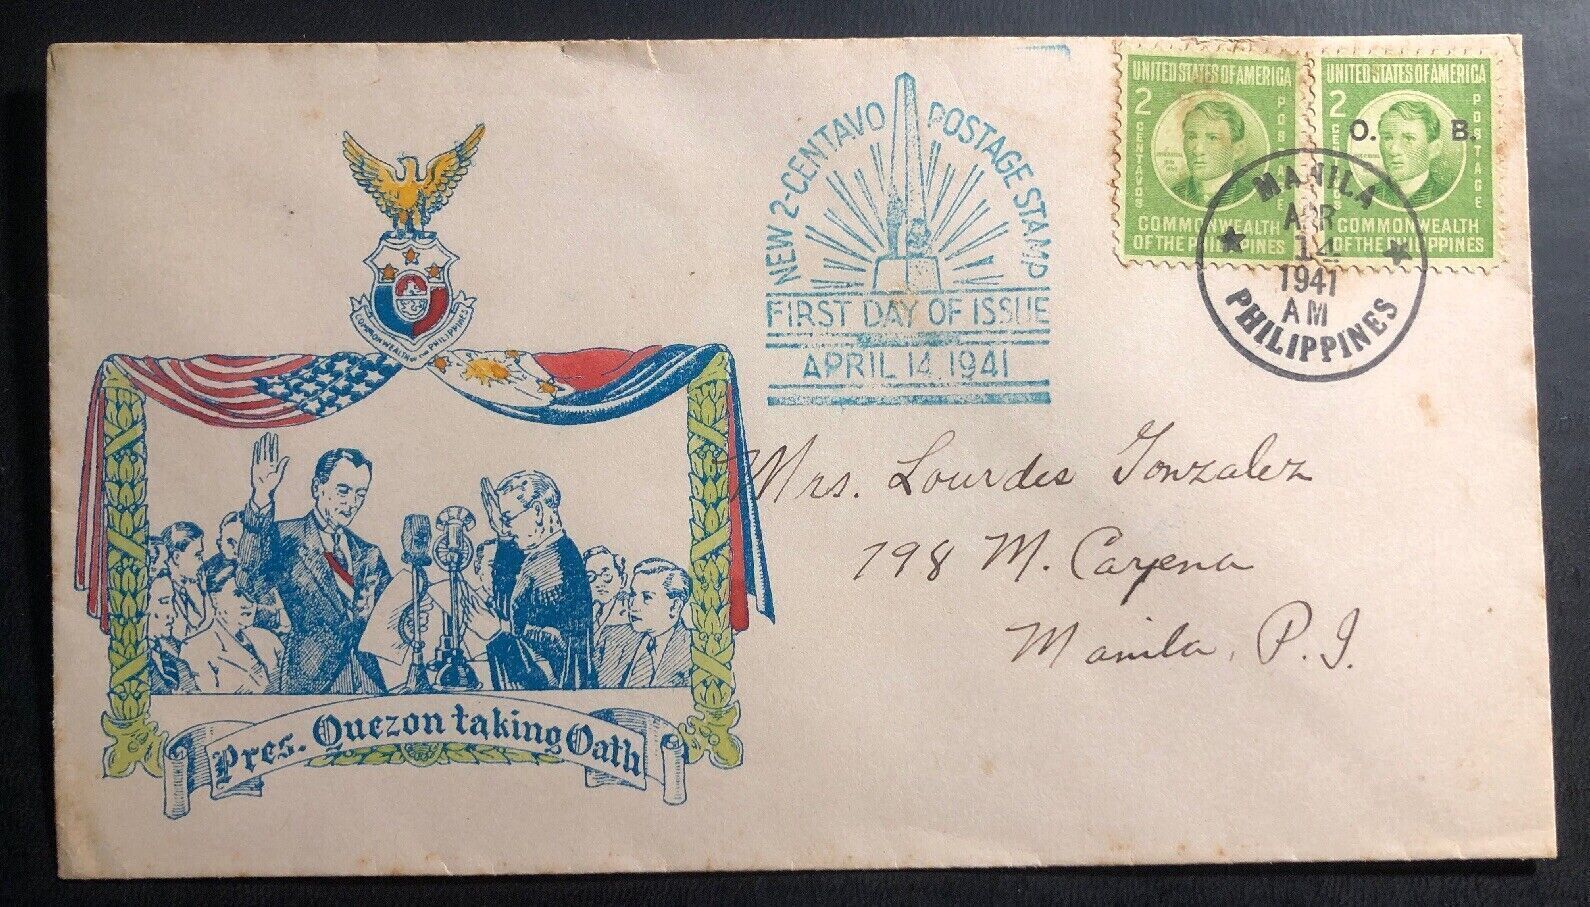 COMMONWEALTH OF THE PHILIPPINES
Pres. Quezon taking Oath
NEW 2-CENTAVO POSTAGE STAMP
FIRST DAY OF ISSUE
APRIL 14, 1941
UNITED STATES OF AMERICA
2
CENTAVOS
POSTAGE
COMMONWEALTH
OF THE PHILIPPINES
UNITED STATES OF AMERICA
2
CENTAVOS
POSTAGE
O. B.
COMMONWEALTH
OF THE PHILIPPINES
MANILA
APR
14
1941
AM
PHILIPPINES
Mrs. Lourdes Gonzalez
798 M. Carena
Manila, P.I.